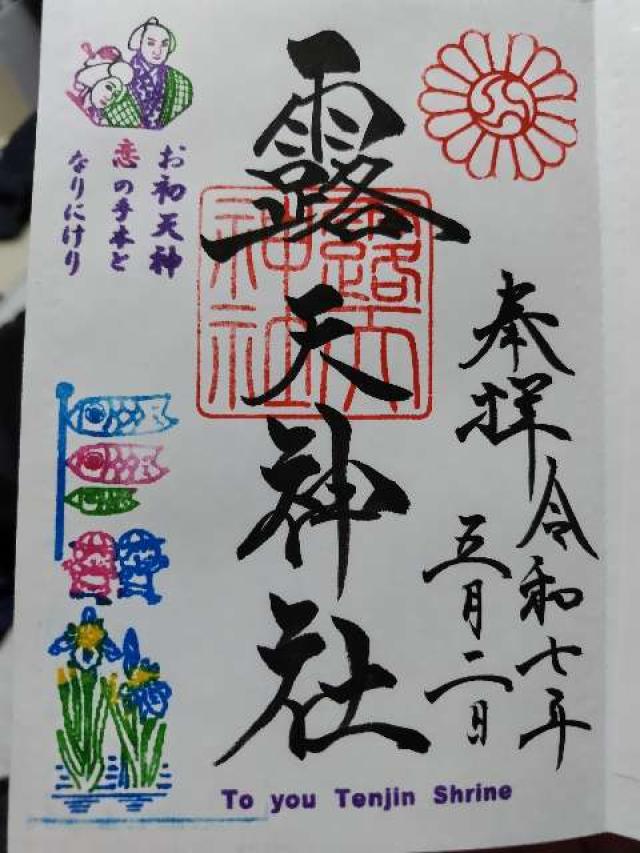 奉拝
令和七年
五月二日
露天神社
露天
神社
お初天神
恋の手本と
なりにけり
To you Tenjin Shrine